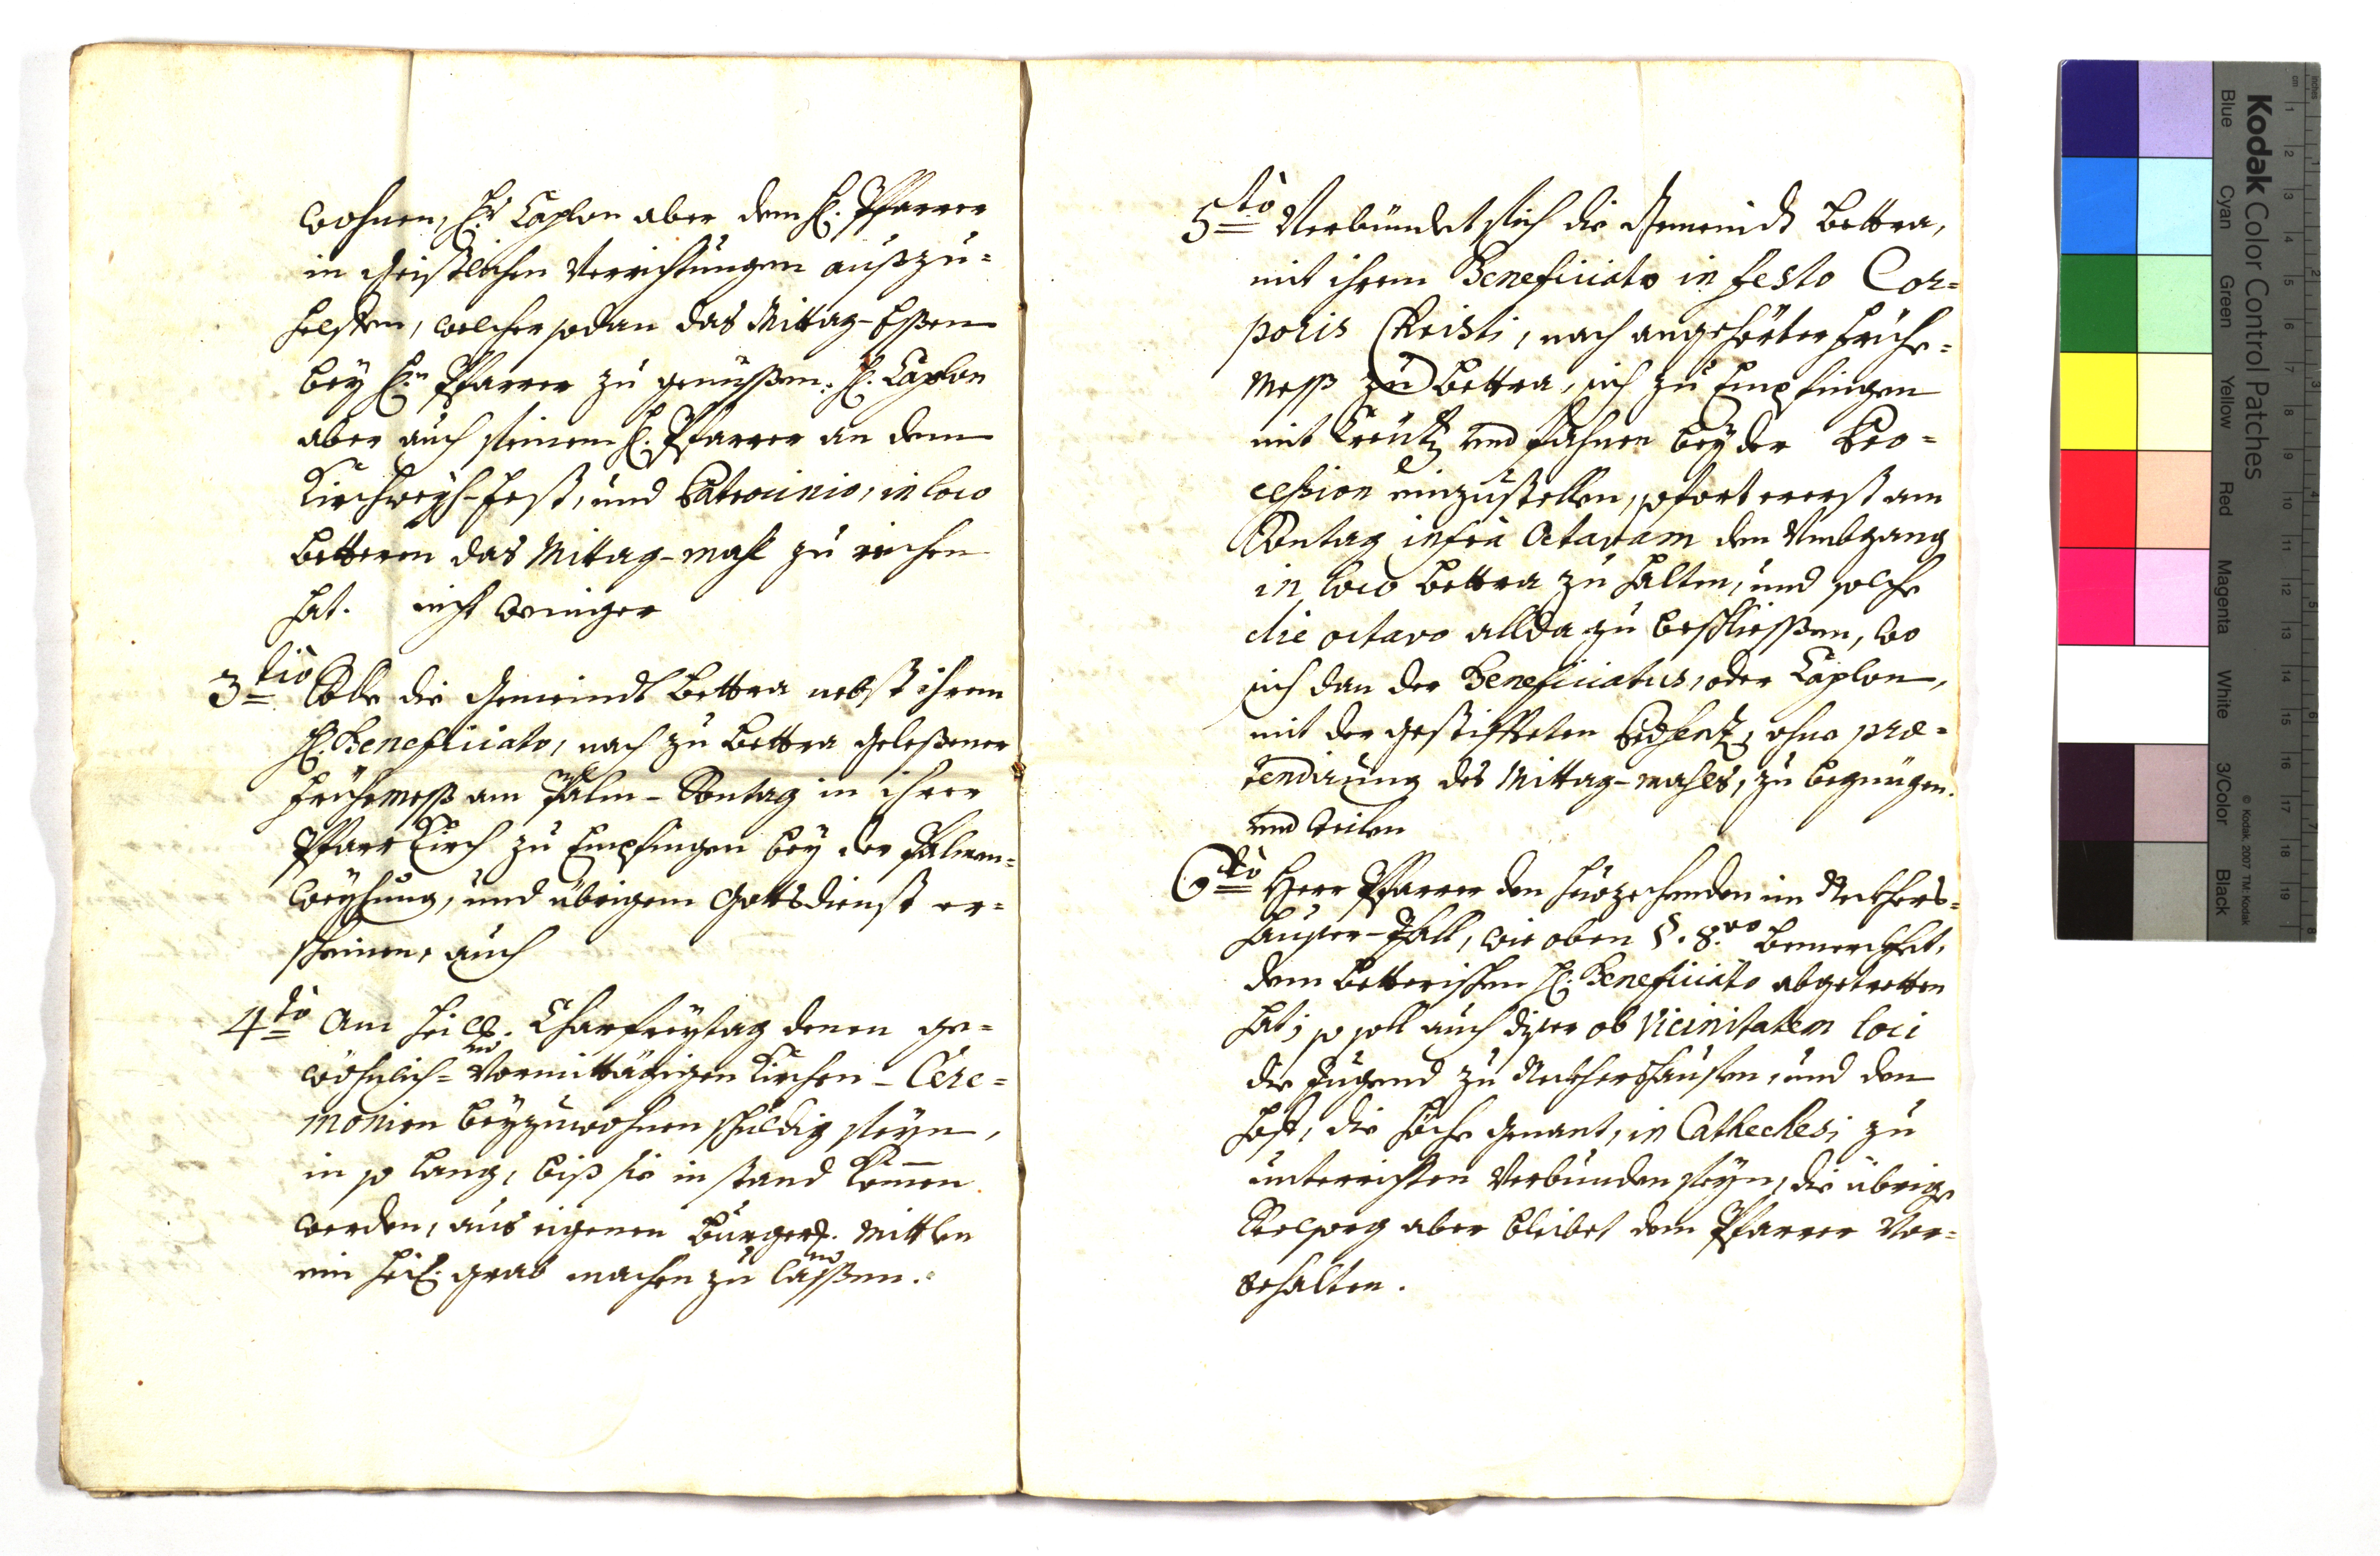 wohnen, Hr. Caplon aber dem H. Pfarrer
in Geistlichen Verrichtungen außzu=
helffen, welcher sodan das Mittag-Eßen
bey H.n Pfarrer zu genüßen. H. Caplon
aber auch seinem H. Pfarrer an dem
Kirchweyh-fest, und Patrocinio, in loco
Betteren das Mittag-mahl zu reichen
hat. nicht weniger
3tiò Solle die Gemeindt Bettra nebst ihrem
H. Beneficiato, nach zu Bettra geleßener
frühemeß am Palm-Sontag in ihrer
Pfarr Kirch zu Empfingen bey der Palmen=
weyhung, und übrigem Gottsdienst er=
scheinen, auch
4tò Am heil. Charfreytag denen ge=
wöhnlich= Vormittägigen Kirchen-Cere=
monien beyzuwohnen schuldig seyn,
in so lang, biß sie in stand kommen
werden, aus eigenen Burgerl. Mittlen
ein heil. grab machen zu laßen.
5tò Verbündet sich die Gemeindt Bettra,
mit ihrem Beneficiato in festo Cor=
poris Christi, nach angehörter frühe=
Meß zu Bettra, sich zu Empfingen
mit Creutz und fahnen bey der Pro=
cession einzustellen, sofort ererst am
Sontag infrà Octavam den Umbgang
in loco Bettra zu halten, und solche
die octavo allda zu beschließen, wo
sich dan der Beneficiatus, oder Caplon,
mit der gestiffteten ohne præ=
tendirung des Mittag-mahls, zu begnügen.
und weilen
6tò Herr Pfarrer den heuzehenden im Neckhers=
hauser-Thall, wie oben §. 8.vo bemerckhet,
dem Betterischen H. Beneficiato abgetretten
hat; so soll auch diser ob Vicinitatem loci
die Jugend zu Neckhershausen, und den
Hoff, die Höche genant, in Cathechesi zu
unterrichten Verbunden seyn, die übrige
Seelsorg aber bleibet dem Pfarrer Vor=
behalten.
Kodak Color Control Patches
Blue Cyan Green Yellow Red Magenta White 3/Color Black
© Kodak, 2007 TM: Kodak